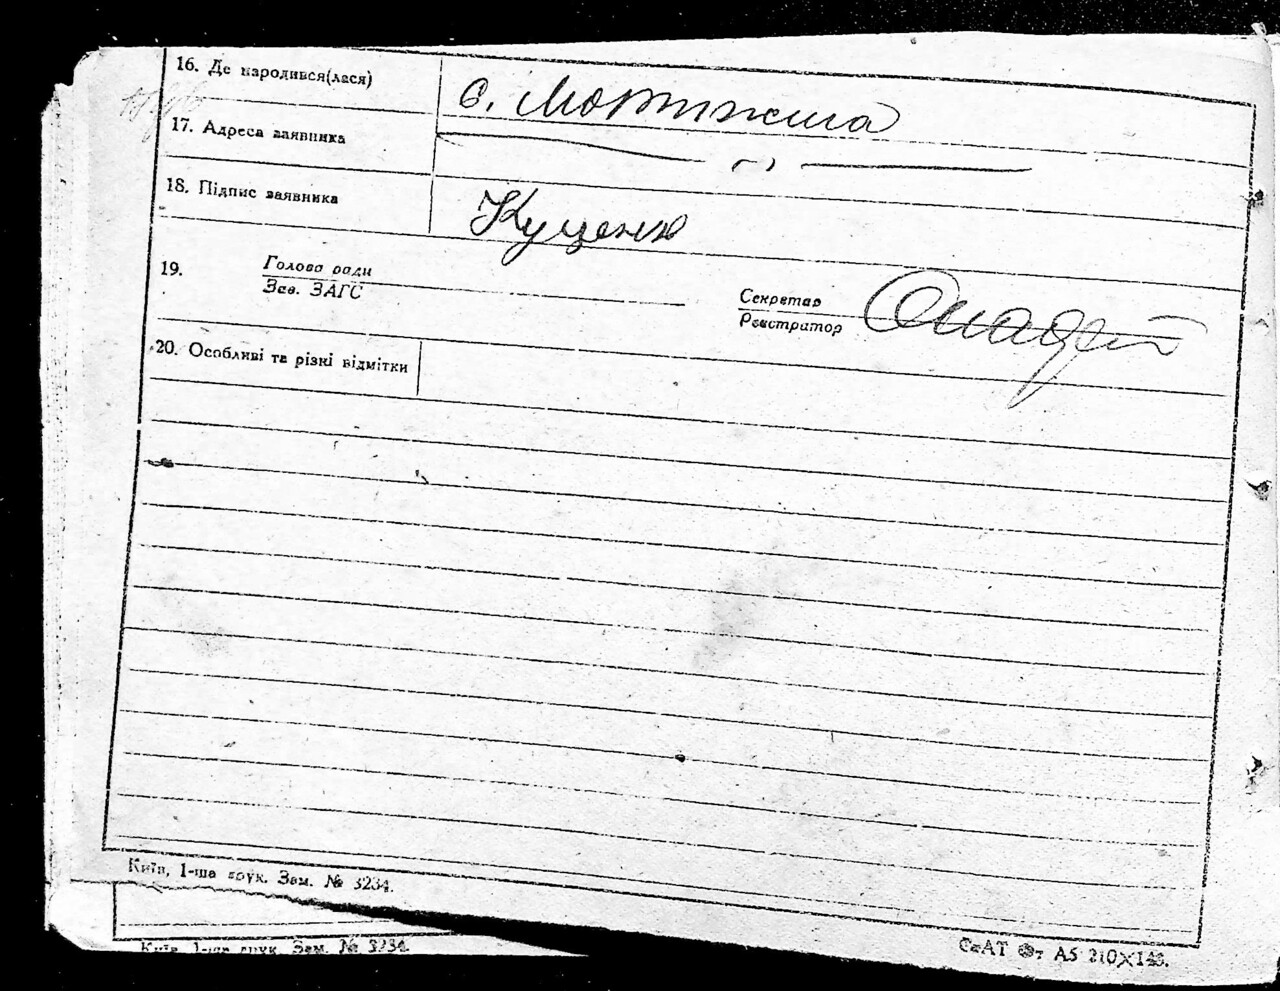 16. Де народився(лася) с. Мотижина
17. Адреса заявника — „ —
18. Підпис заявника Куценко
19. Голова ради
Зав. ЗАГС
Секретар
Реєстратор
20. Особливі та різні відмітки
Київ, 1-ша друк. Зам. № 3234.
Київ, 1-ша друк. Зам. № 3234.
А5 210×148.